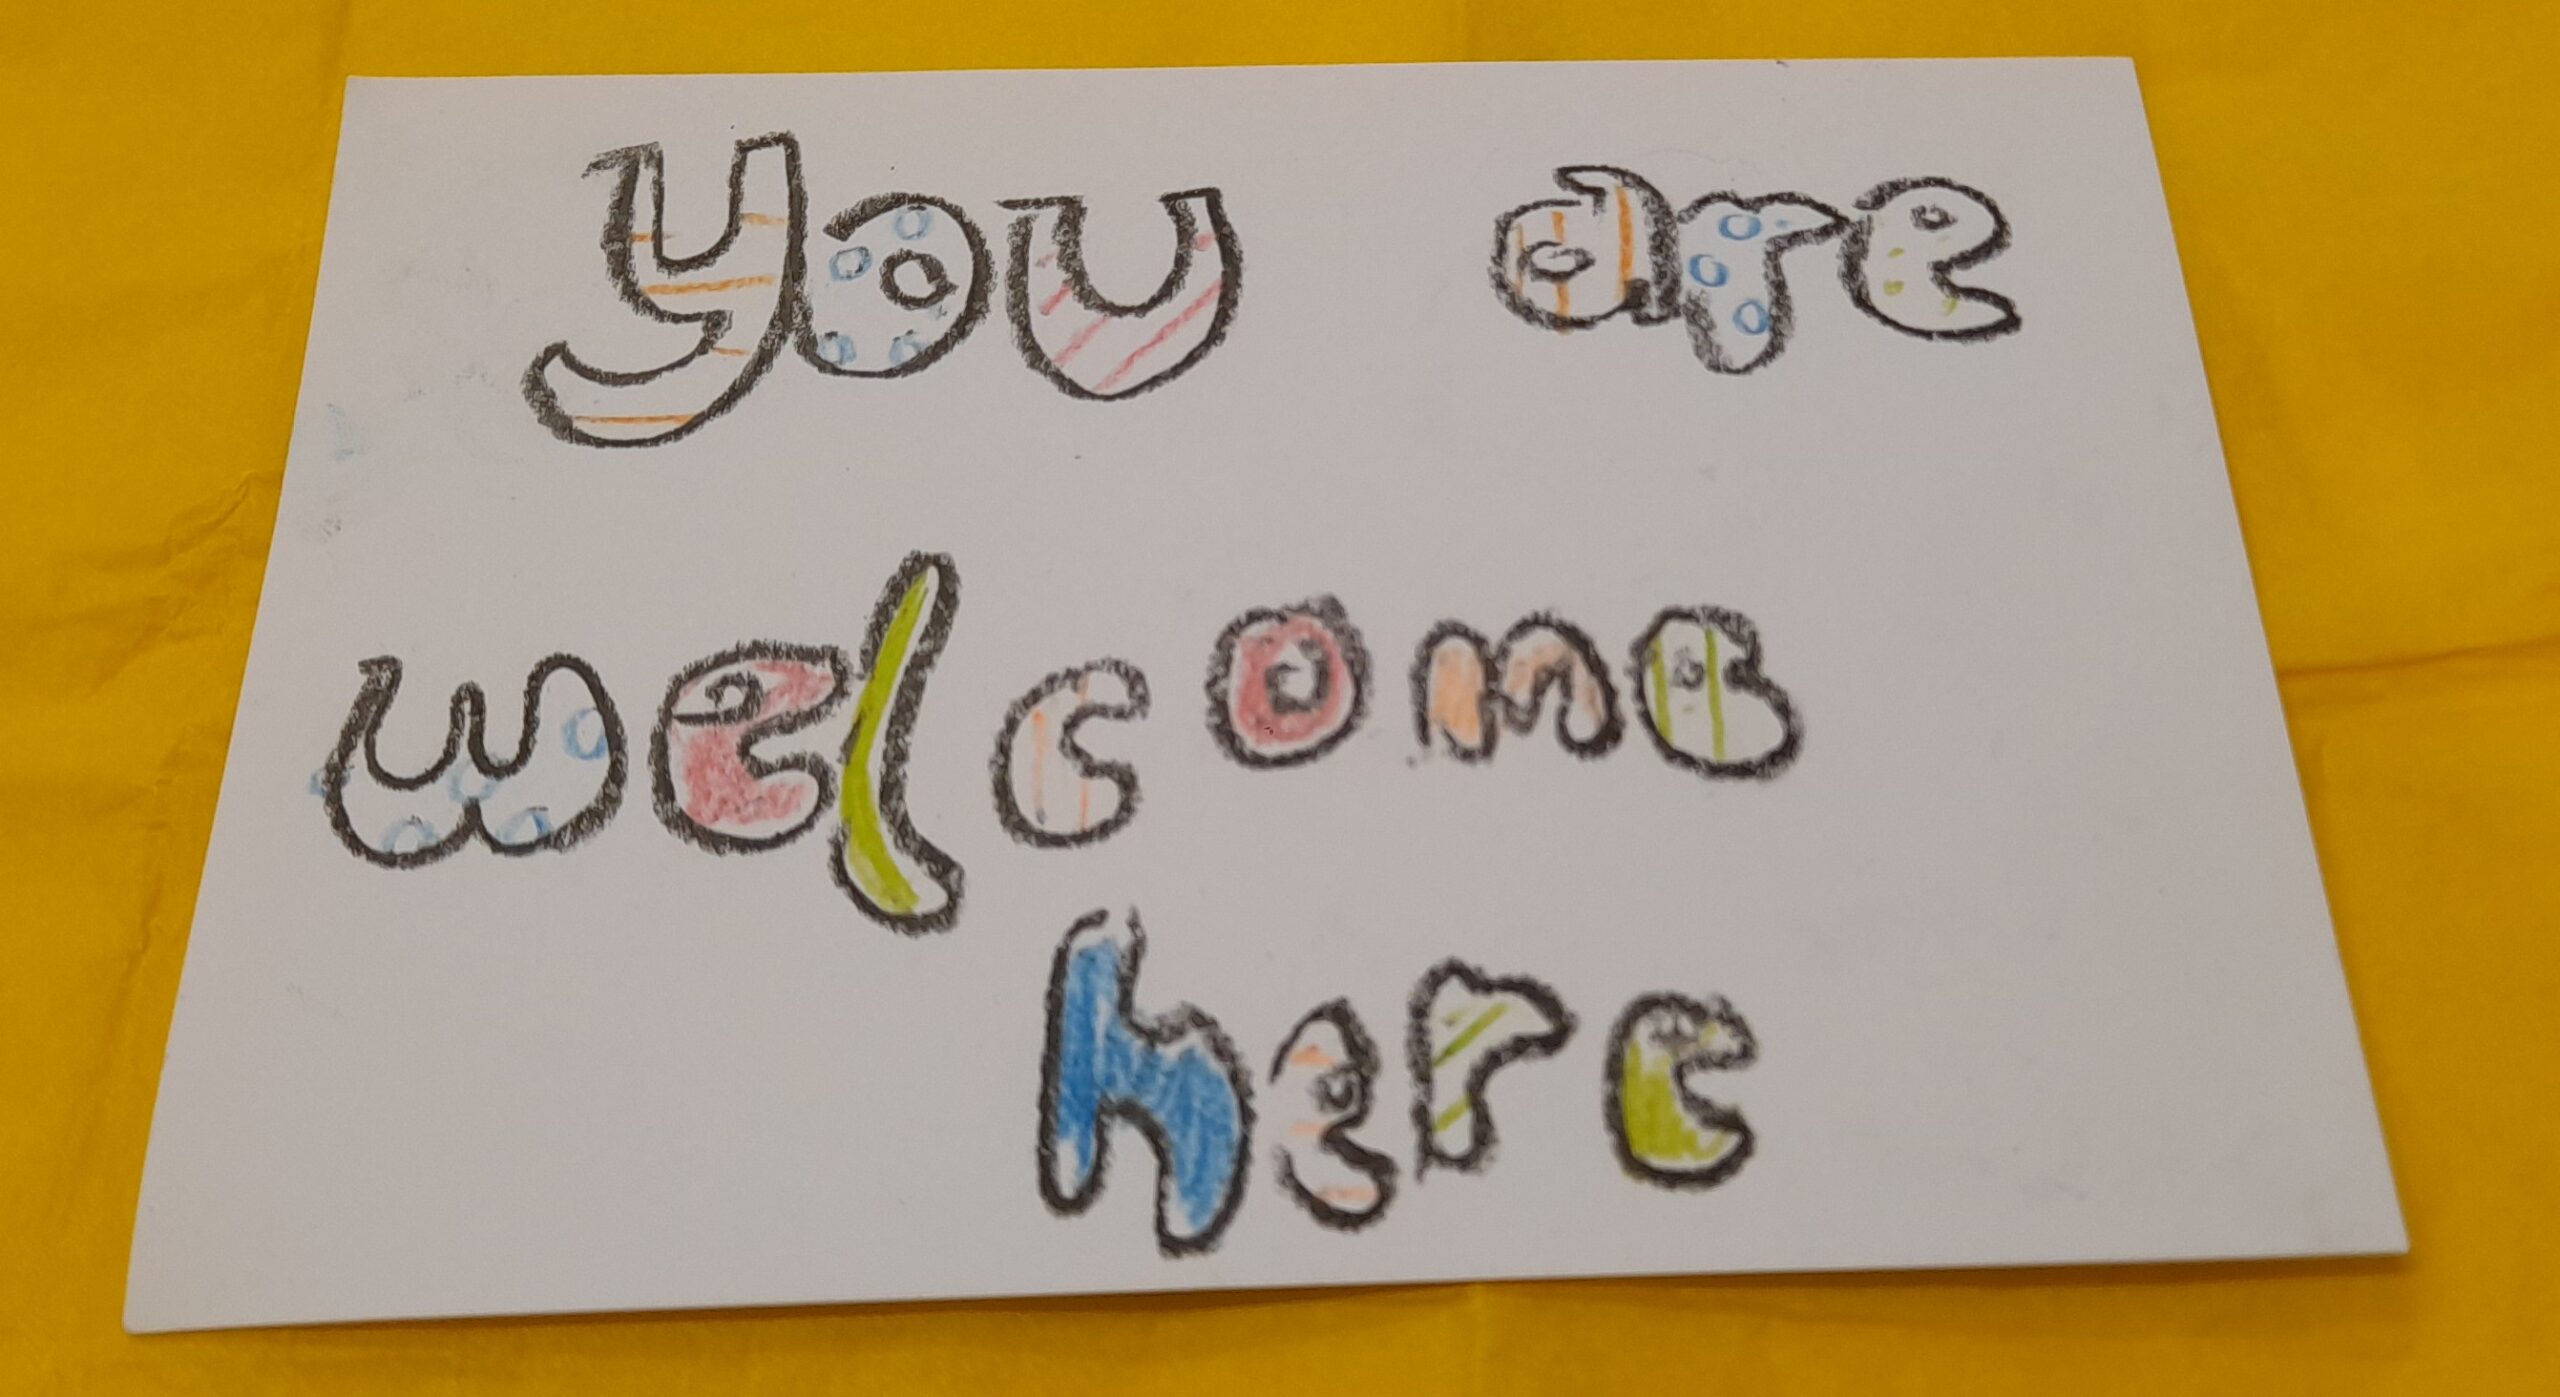 you are
welcome
here